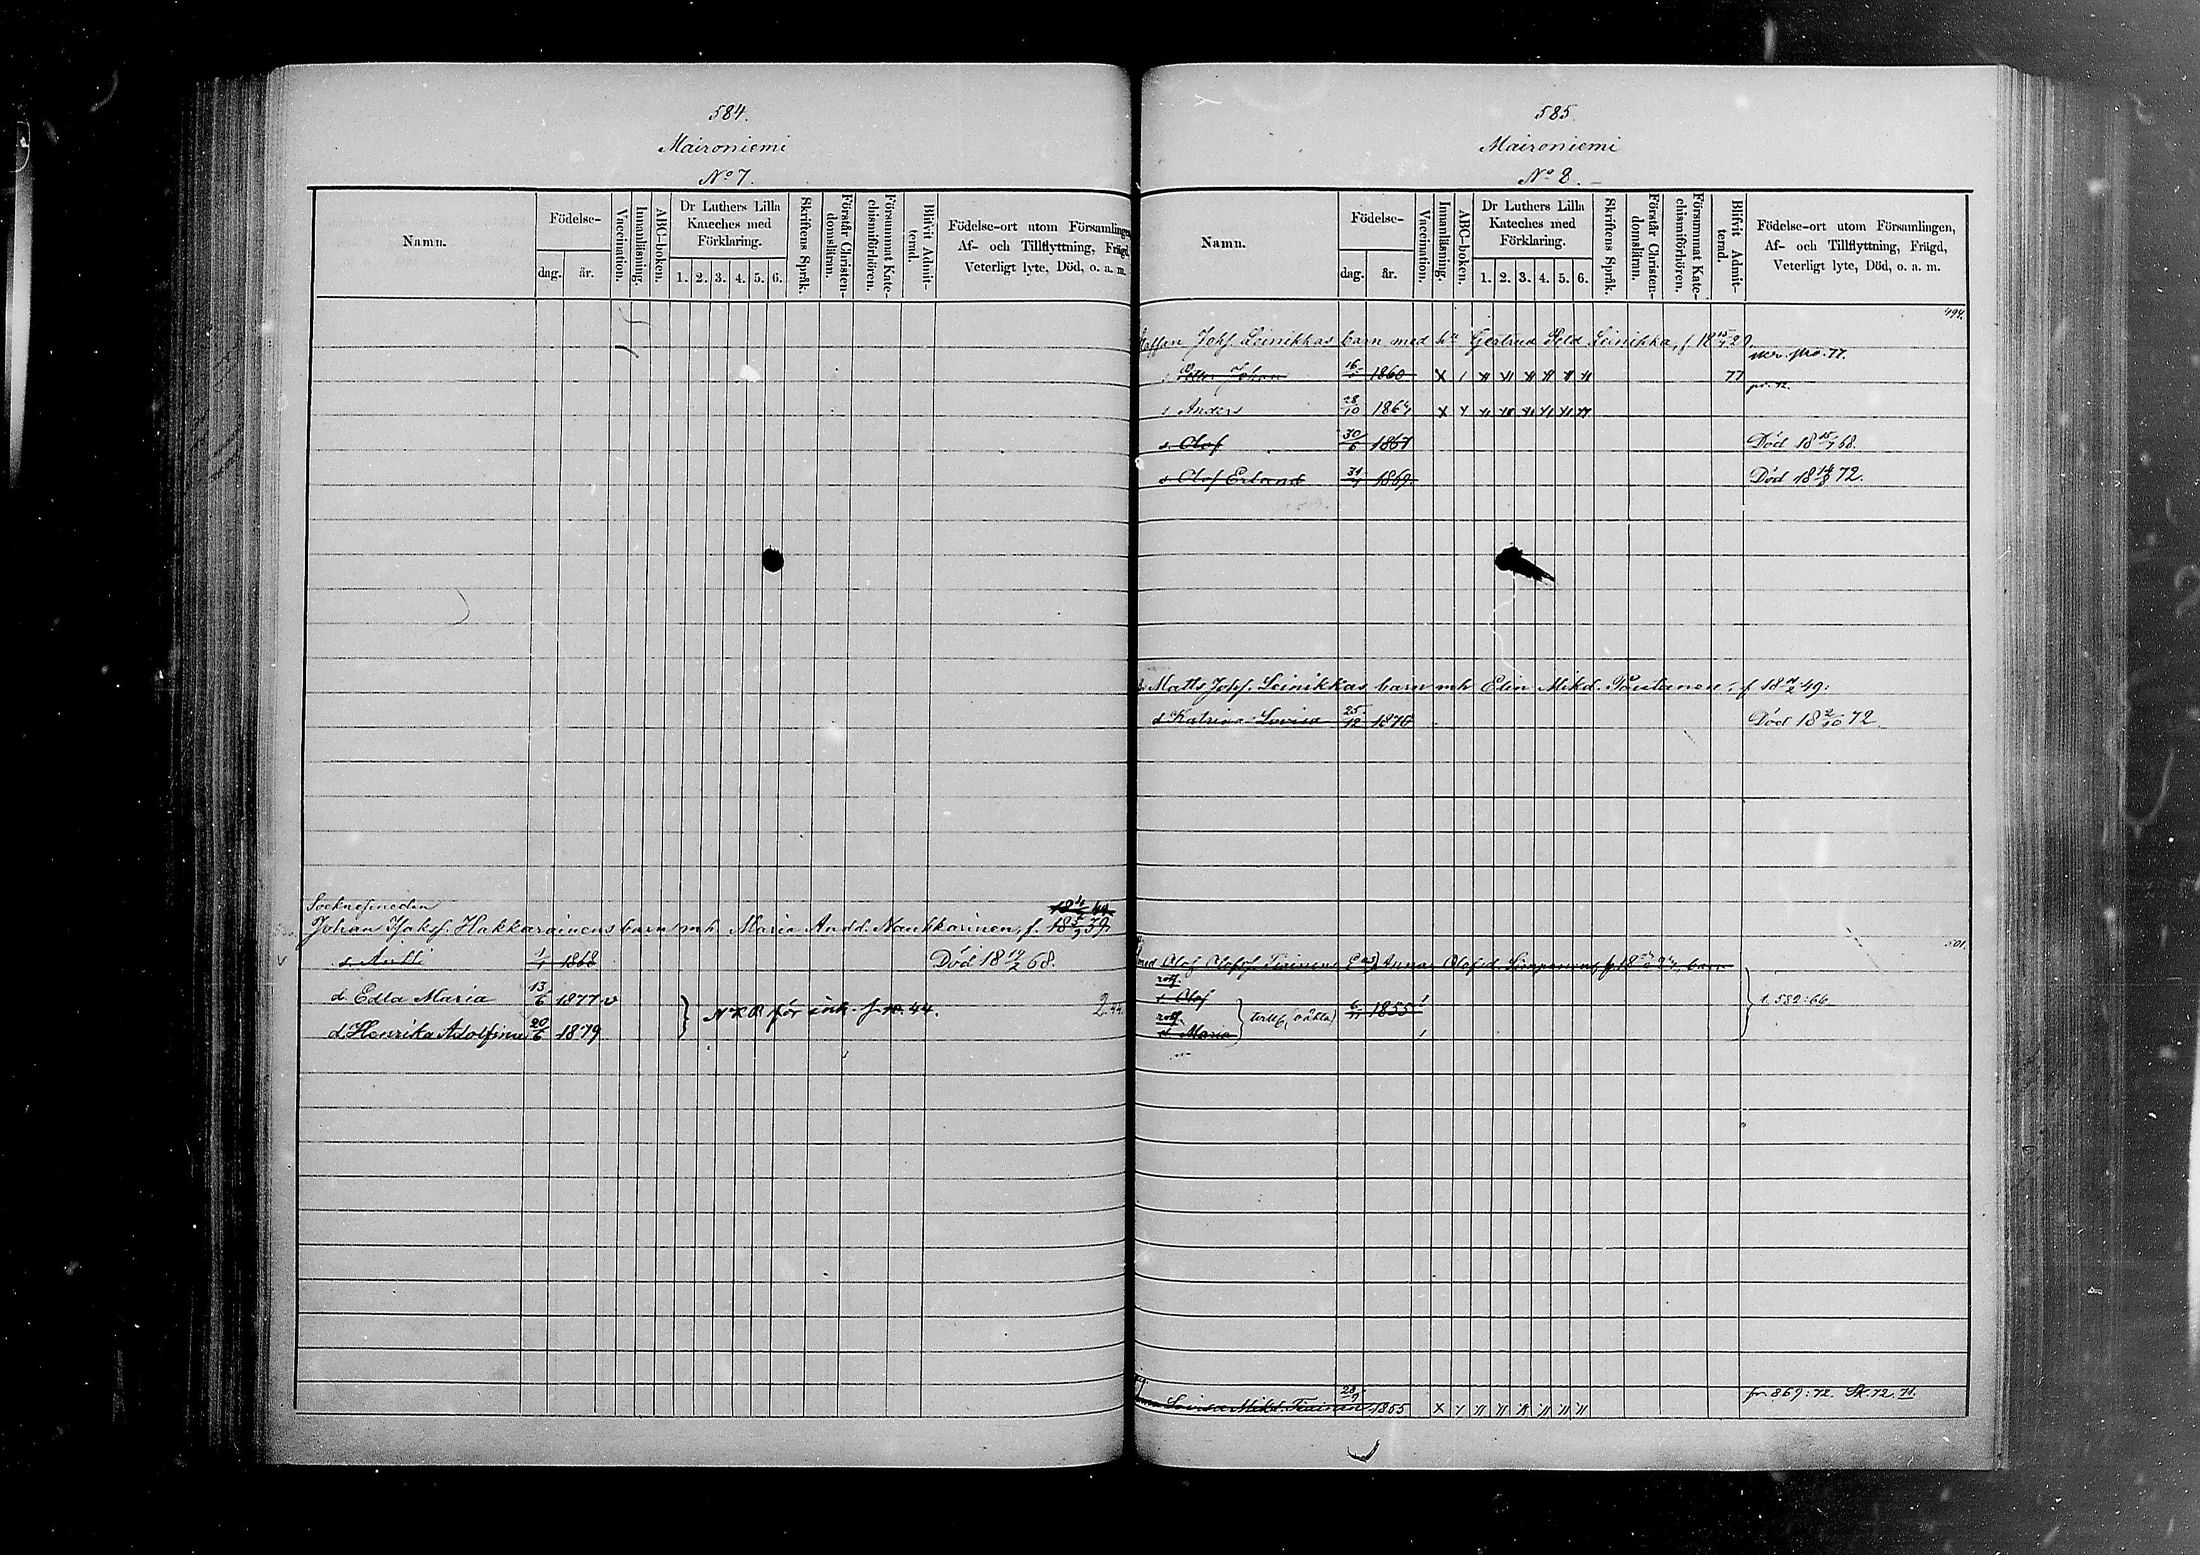 584.
Maironiemi
No 7.
Namn.
Födelse-
dag.
år.
Vaccination.
Innanläsning.
ABC-boken.
Dr Luthers Lilla
Kateches med
Förklaring.
1. 2. 3. 4. 5. 6.
Skriftens Språk.
Förstår Christen-
domsläran.
Försummat Kate-
chismiförhören.
Blifvit Admit-
terad.
Födelse-ort utom Församlingen,
Af- och Tillflyttning, Frägd,
Veterligt lyte, Död, o. a. m.
Socknesmeden
Johan Isaksf. Hakkarainens barn mh Maria Andd. Naukkarinen, f. 18 5/9 39
s. Antti 1/1 1868 Död 18 17/2 68.
d. Edla Maria 13/6 1877 v
d. Henrika Adolfina 20/6 1879 2.44.
585.
Maironiemi
No 8.
Namn.
Födelse-
dag.
år.
Vaccination.
Innanläsning.
ABC-boken.
Dr Luthers Lilla
Kateches med
Förklaring.
1. 2. 3. 4. 5. 6.
Skriftens Språk.
Förstår Christen-
domsläran.
Försummat Kate-
chismiförhören.
Blifvit Admit-
terad.
Födelse-ort utom Församlingen,
Af- och Tillflyttning, Frägd,
Veterligt lyte, Död, o. a. m.
494.
Staffan Johf. Leinikkas barn med hu Gertrud Leinikka, f 18 15/1 29.
s Petter Johan 16 1860 77
s Anders 28/10 1864
s. Olof 30/6 1867 Död 18 15/1 68.
s Olof Erland 31/1 1869. Död 18 14/8 72.
Matts Johf. Leinikkas barn mh Elin Mikd. Pöulanen, f 18 7/2 49:
d Katrina Lovisa 25/12 1870 Död 18 2/10 72.
501.
Olof Olofsf. Tiainens Anna Olofsd barn
s Olof 6/11 1855 t. 582:66
d Maria
Lovisa Mikd. Tiainen 28/9 1855 fr 869:72. Sk. 72. 71.